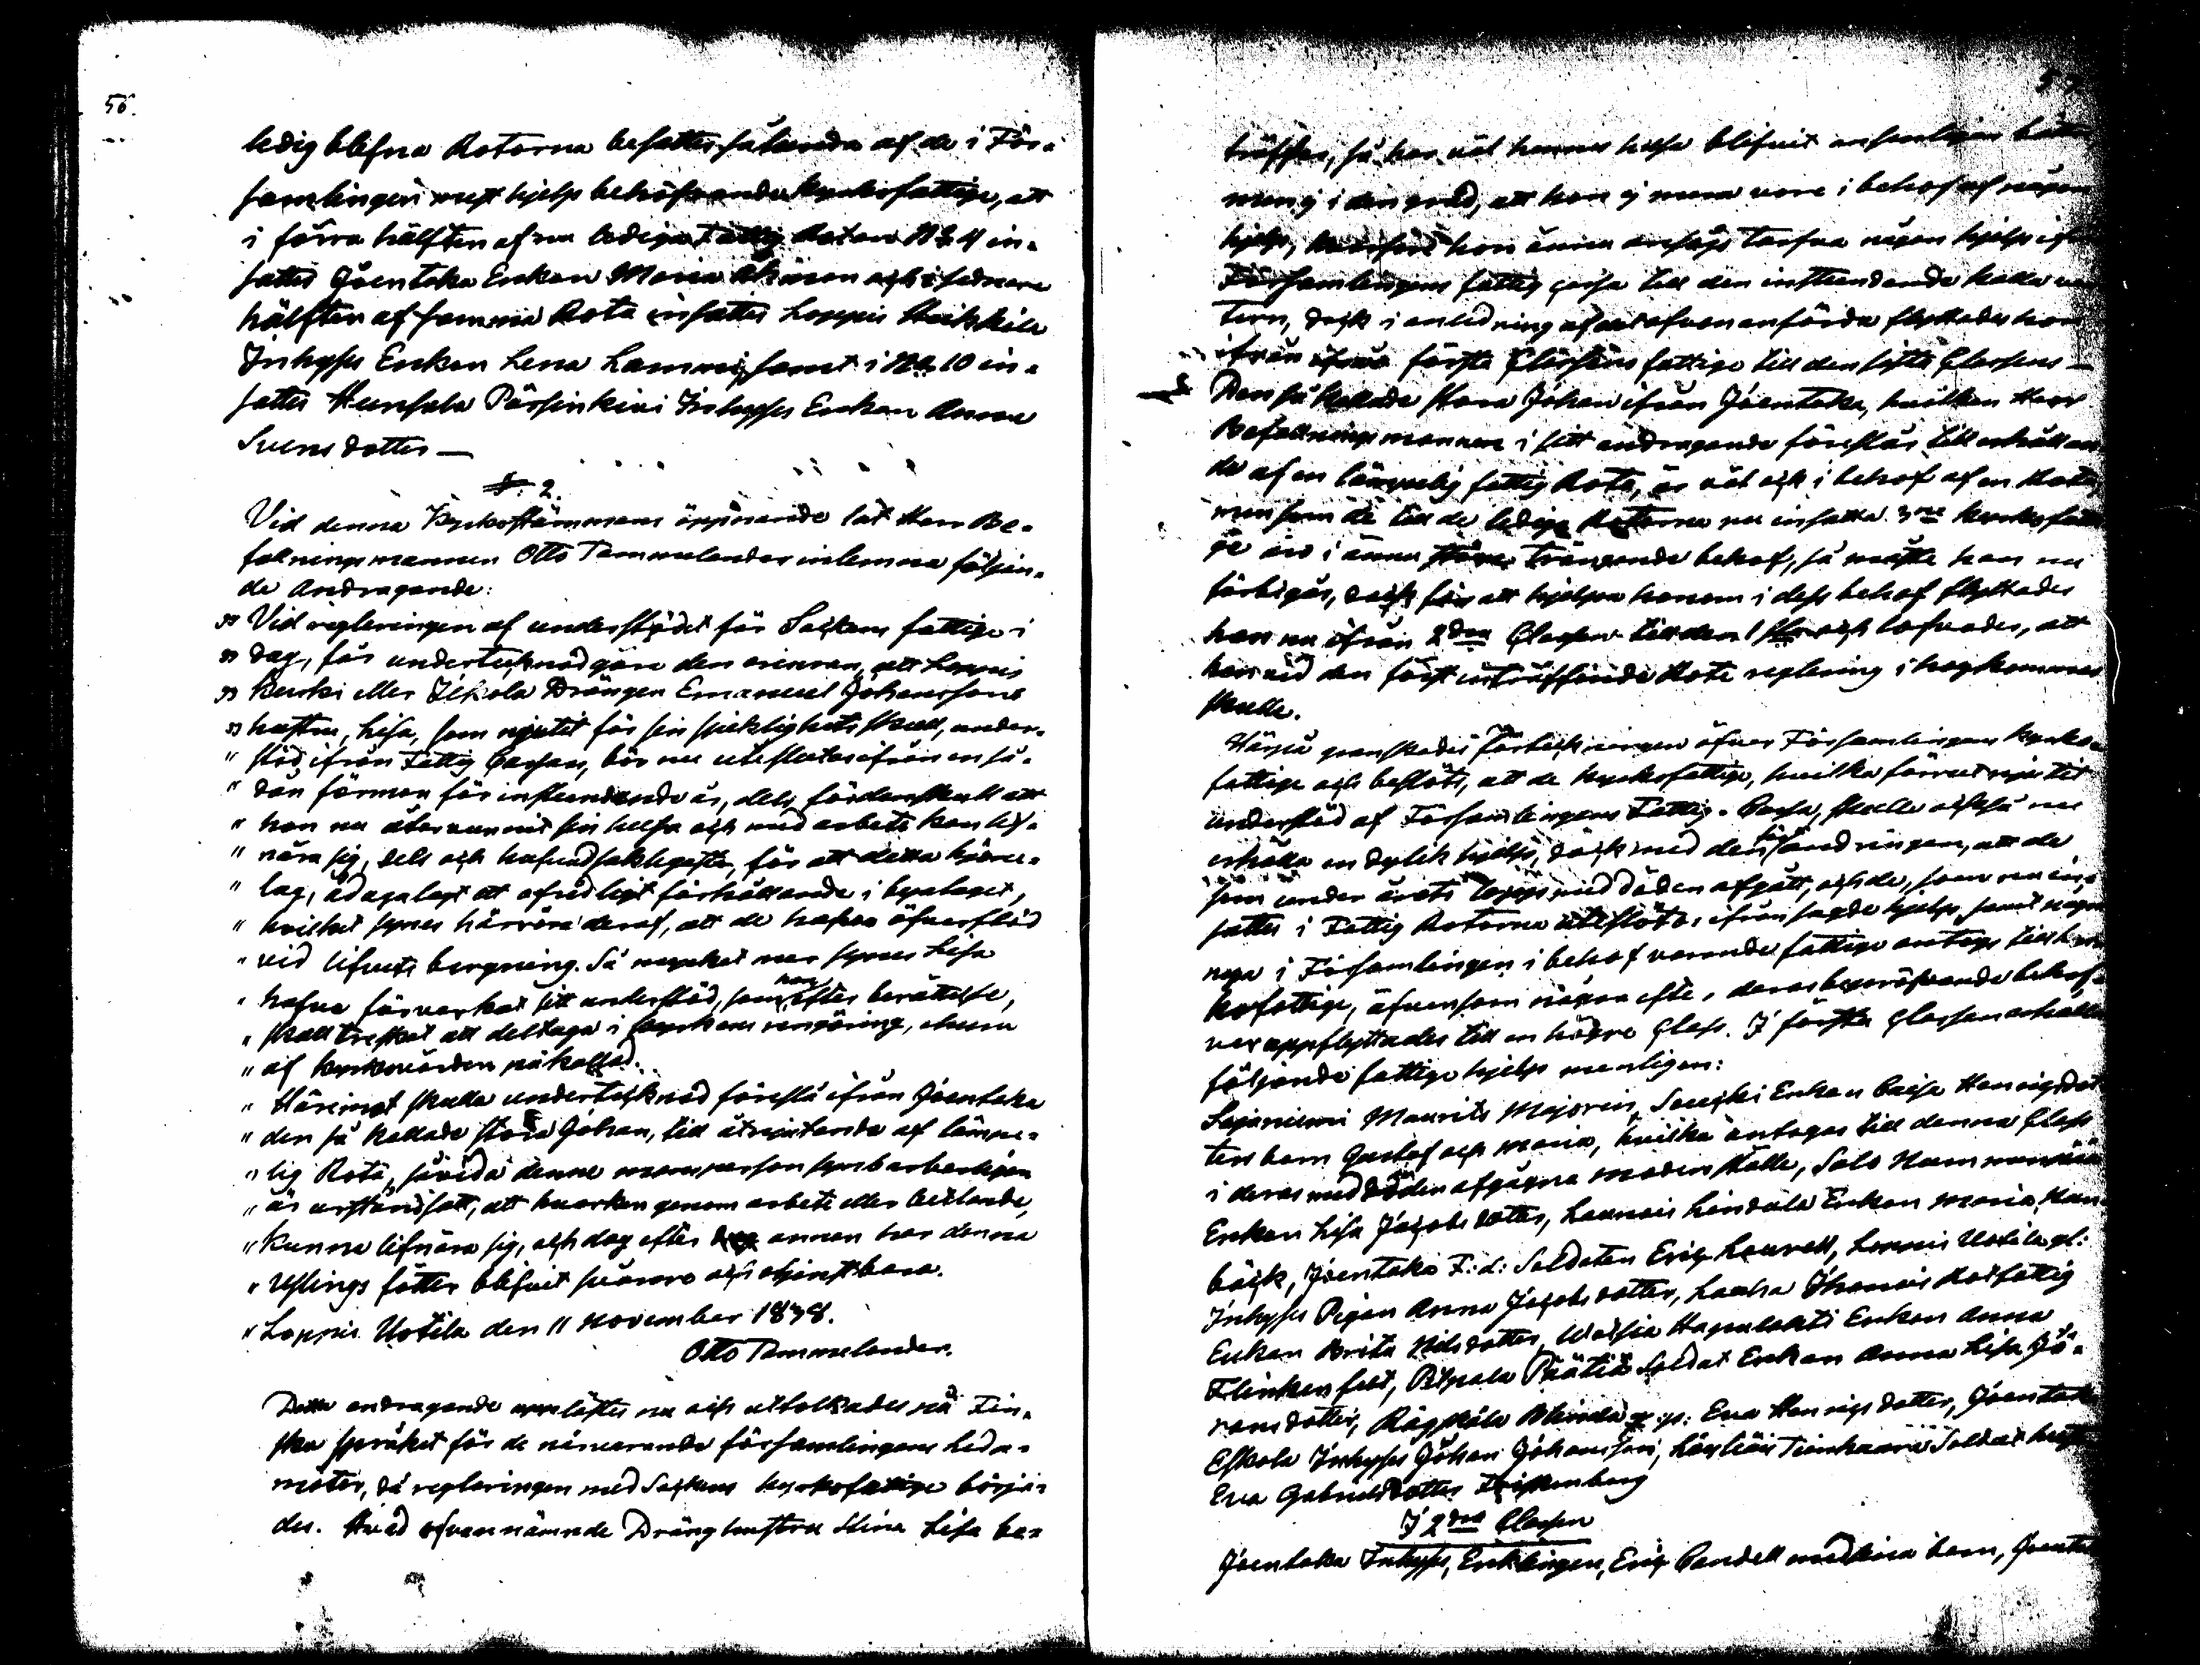 56.
ledig blefna Rotorna besattes sålunda af de i För-
samlingen mest hjelp behöfvande kyrkofattige, att
i förra hälften af nu lediga Fattig Rotan N:o 4 in-
sattes Joentaka Enkan Maria och i sednare
hälften af samma Rota insattes Loppis Heikkilä
Inhyses Enkan Lena Lammi, samt i N:o 10 in-
sattes Hunsala Pärsinkivi Inhyses Enkan Anna
Svensdotter —
§. 2.
Vid denna Kyrkostämmans öppnande lät Herr Be-
fallningsmannen Otto Tammelander inlemna följan-
de Andragande:
" Vid regleringen af understödet för Sockens fattige i
" dag, får undertecknad göra den erinran, att Loppis
" Kurki eller Jlkola Drängen Emanuel Johanssons
" hustru, Lisa, som njutit för sin sjuklighets skull, under-
" stöd ifrån Fattig Cassan, bör nu uteslutas ifrån en så-
" dan förmon för instundande år, dels fördenskull att
" hon nu återvunnit sin helsa och med arbete kan lif-
" nära sig, dels och hufvudsakligast, för att detta hjone-
" lag, ådagalagt ett ofredligt förhållande i byalaget,
" hvilket synes härröra deraf, att de hafva öfverflöd
" vid lifvets bergning. Så mycket mer synes Lisa
" hafva förverkat sitt understöd, som hon efter berättelse,
" skall treskat att deltaga i kyrkans rengöring, ehuru
" af kyrkovärden påkallad.
" Häremot skulle undertecknad föreslå ifrån Joentaka
" den så kallade stora Johan, till åtnjutande af lämpe-
" lig Rota, såvida denne mansperson synbarligen
" är urståndsatt, att hvarken genom arbete eller betlande,
" kunna lifnära sig, och dag efter dag annan har denna
" Uslings fötter blifvit svårare och obrukbara.
" Loppis Uotila den 11 November 1838.
Otto Tammelander.
Detta andragande upplästes nu och uttolkades på Fin-
ska språket för de närvarande församlingens Leda-
möter, då regleringen med Sockens kyrkofattige börja-
des. Hvad ofvannämnde Dränghustru Stina Lisa be-
57
träffar, så har väl hennes helsa blifvit ansenligen bättre
men ej i den grad, att hon ej mera vore i behof af någon
hjelp, hvarföre hon ännu ansågs tarfva någon hjelp ifrån
Församlingens fattig cassa till den instundande kalla vin
tern, dock i anledning af det ofvananförda flyttades hon
ifrån första Classens fattige till den sista Classens —
Den så kallade Stora Johan ifrån Joentaka, hvilken Herr
Befallningsmannen i sitt andragande föreslår till erhållan
de af en lämpelig fattig Rota, är väl ock i behof af en Rota,
men som de till de lediga Rotorna nu insatta 3ne kyrkofatti
ge äro i ännu större trängande behof, så måste han nu
förbigås, dock för att hjelpa honom i dess behof flyttades
han nu ifrån 2dra Classen till den 1sta och lofvades, att
han vid den först inträffande Rote reglering i hogkommas
skulle.
Härpå granskades förteckningen öfver Församlingens Kyrko-
fattige och beslöts, att de kyrkofattige, hvilka förrut njutit
understöd af Församlingens Fattig-Cassa, skulle också nu
erhålla en dylik hjelp, dock med den förändringen, att de
som under årets lopp med döden afgått, och de, som nu in-
satts i Fattig Rotorna uteslöts ifrån sagde hjelp, samt någre
nya i Församlingen i behof varande fattige antogs till kyr
kofattige, äfvensom någre efter deras bepröfvande behof
ver uppflyttades till en högre Class. I första Classen erhålla
följande fattige hjelp nemligen:
Sajaniemi Maurits Majorin, Enkan Caisa Henrigsdot
ters barn Gustaf och Maria, hvilka antogos till denna Class
i deras med döden afgågna moders ställe, Salo
Enkan Lisa Jacobsdotter, Launois Lindula Enkan Maria
bäck, Joentaka F:d: Soldaten Eric Laurell, Loppis Uotila gl:
Inhyses Pigan Anna Jacobsdotter,
Enkan Brita Nilsdotter, Enkan Anna
Flinkenfelt, Pilpala Soldat Enkan Anna Lisa Jö-
ransdotter, Rägskälä Eva Henrigsdotter, Joentaka
Eskola Inhyses Johan Johansson, Läyliäis Soldat hustru
Eva Gabrielsdotter
I 2dra Classen
Joentaka Inhyses, Enklingen, Eric med sina barn, Joentaka